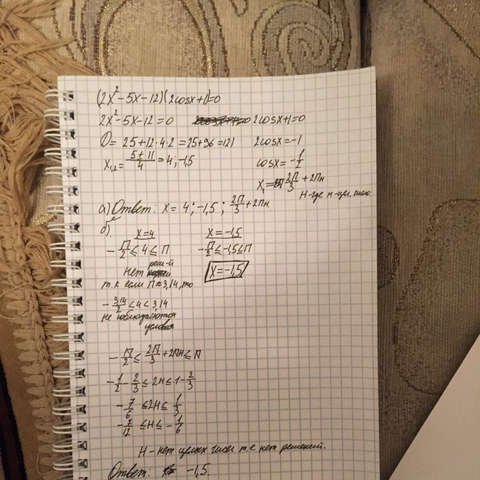 (2x²-5x-12)(2cosx+1)=0
2x²-5x-12=0 2cosx+1=0
D=25+12·4·2=25+96=121 2cosx=-1
x₁,₂=(5±11)/4=4;-1,5 cosx=-1/2
x₁=2П/3+2Пн
н-где н-цел. число.
а) Ответ: x=4;-1,5; 2П/3+2Пн
б) x=4 x=-1,5
-П/2≤4≤П -П/2≤-1,5≤П
Нет реш-й x=-1,5
т.к если П=3,14, то
-3,14/2≤4<3,14
не соблюдаются
условия
-П/2≤2П/3+2Пн≤П
-1/2-2/3≤2н≤1-2/3
-7/6≤2н≤1/3
-7/12≤н≤-1/6
н-нет целых чисел т.е нет решений.
Ответ: -1,5.